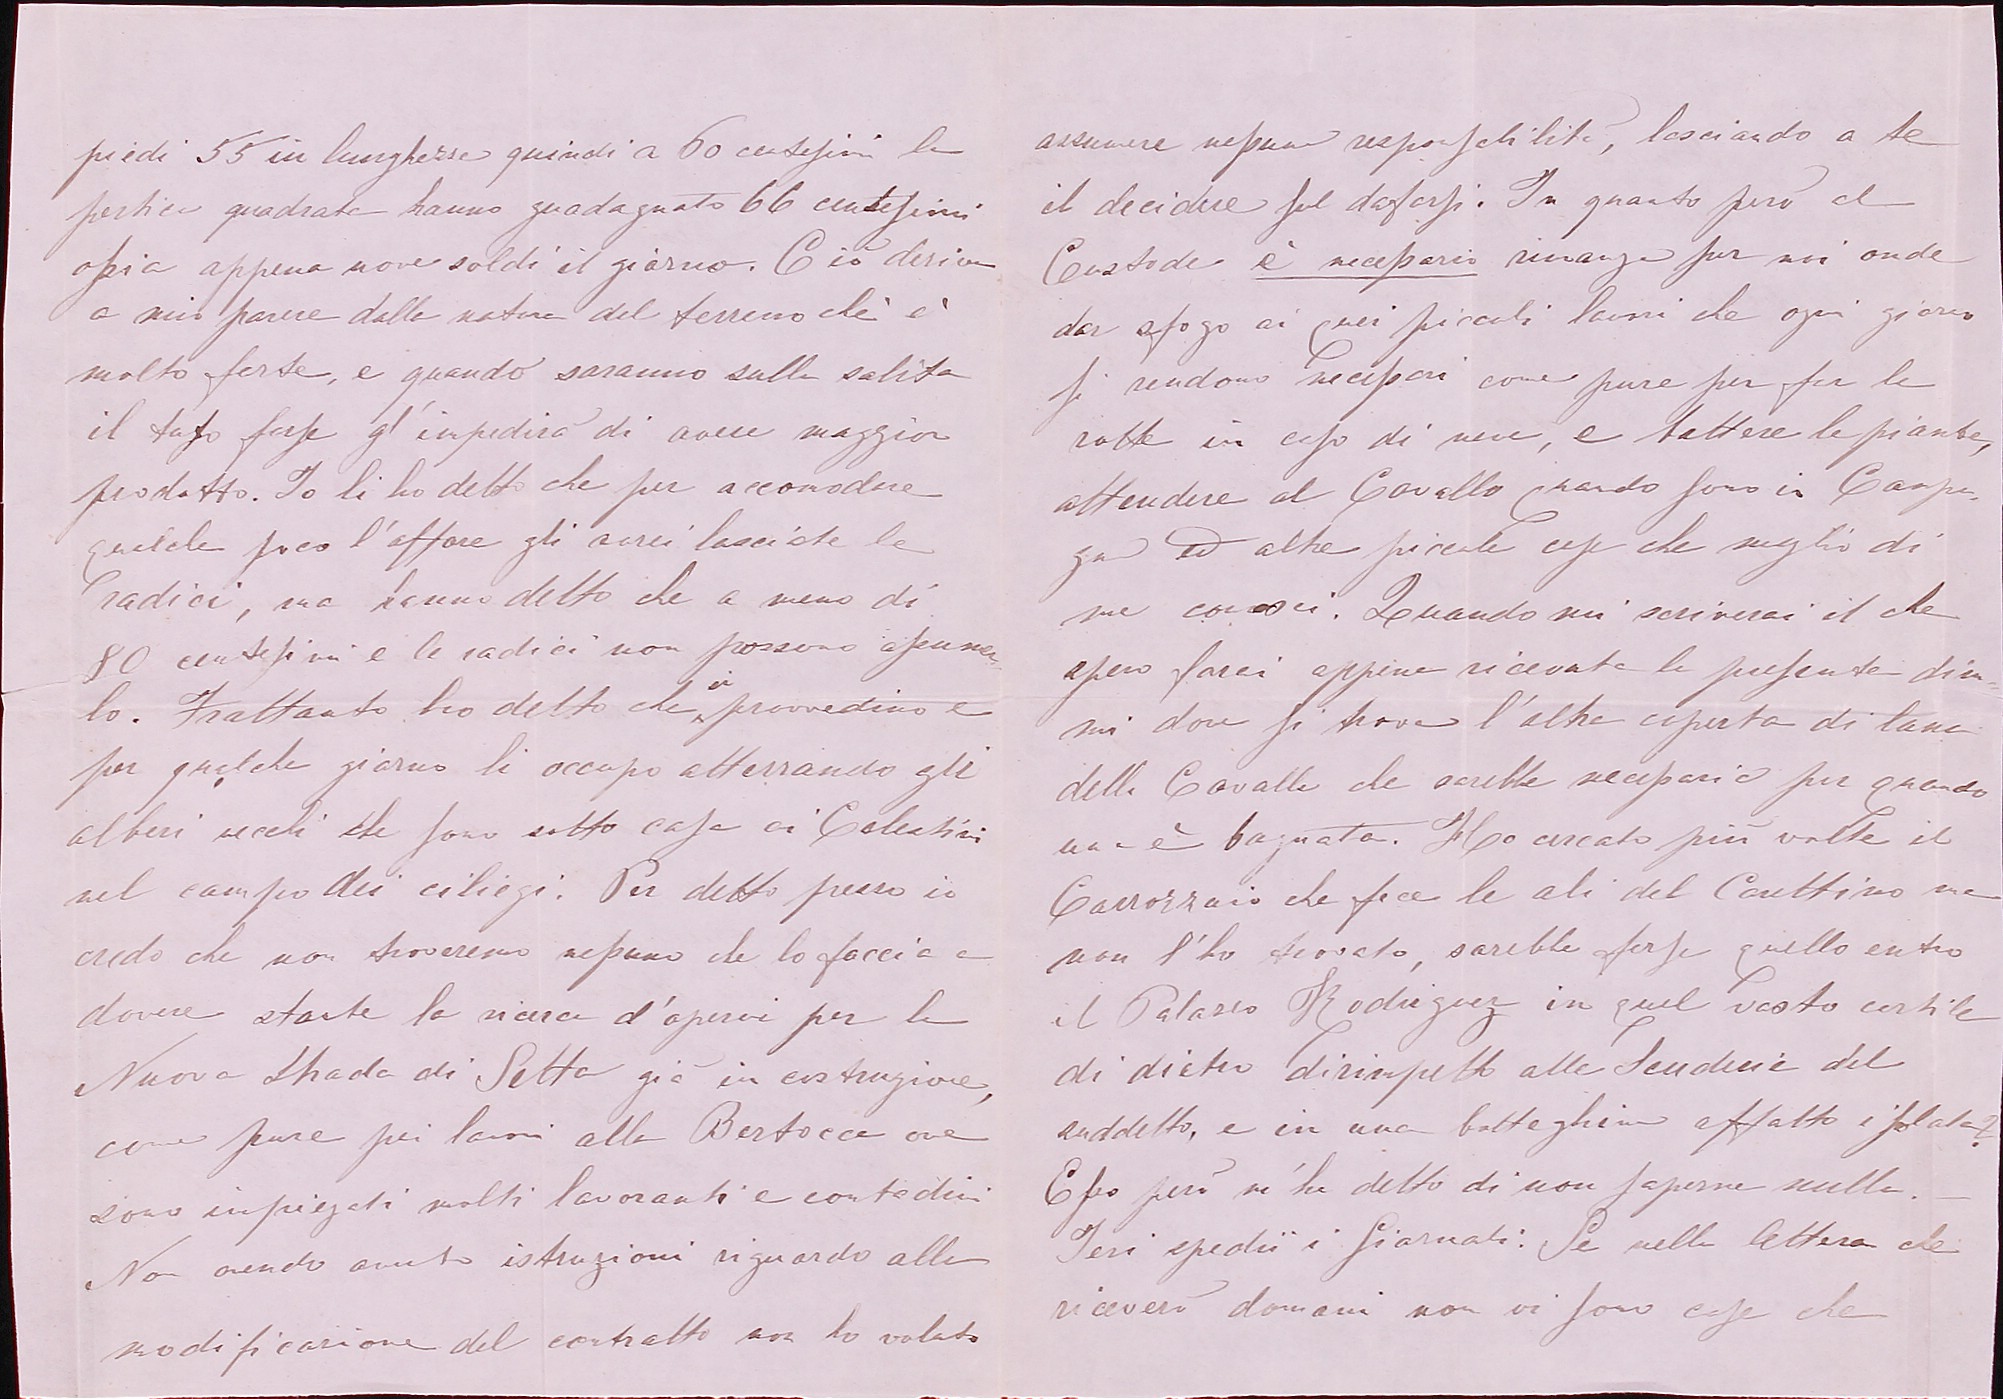 piedi 55 in lunghezza quindi a 60 centesimi la
pertica quadrata hanno guadagnato 66 centesimi
ossia appena nove soldi il giorno. Ciò deriva
a mio parere dalla natura del terreno chè è
molto forte, e quando saranno sulla salita
il tufo forse gl'impedirà di avere maggior
prodotto. Io li ho detto che per accomodare
qualche poco l'affare gli avrei lasciate le
radici, ma hanno detto che a meno di
80 centesimi e le radici non possono assumer-
lo. Frattanto ho detto che vi provvedino e
per qualche giorno li occupo atterrando gli
alberi vecchi che sono sotto casa ai Celestini
nel campo dei ciliegi. Per detto prezzo io
credo che non troveremo nessuno che lo faccia a
dovere stante la ricerca d'operai per la
Nuova Strada di Setta già in costruzione,
come pure pei lavori alla Bertocca ove
sono impiegati molti lavoranti e contadini
Non avendo avuto istruzioni riguardo alla
modificazione del contratto non ho voluto
assumere nessuna responsabilità, lasciando a te
il decidere sul dafarsi. In quanto però al
Custode è necessario rimanga per noi onde
dar sfogo ai quei piccoli lavori che ogni giorno
si rendono necessari come pure per far le
rotte in caso di neve, e battere le piante,
attendere al Cavallo quando sono in Campa-
gna ed altre piccole cose che meglio di
me conosci. Quando mi scriverai il che
spero farai appena ricevuta la presente dim-
mi dove si trova l'altra coperta di lana
della Cavalla che sarebbe necessaria per quando
una è bagnata. Ho cercato più volte il
Carrozzaio che fece le ali del Carettino ma
non l'ho trovato, sarebbe forse quello entro
il Palazzo Rodriguez in quel vasto cortile
di dietro dirimpetto alle Scuderie del
suddetto, e in una botteghina affatto isolata?
Esso però m'ha detto di non saperne nulla. —
Ieri spedii i Giornali. Se nella lettera che
riceverò domani non vi sono cose che